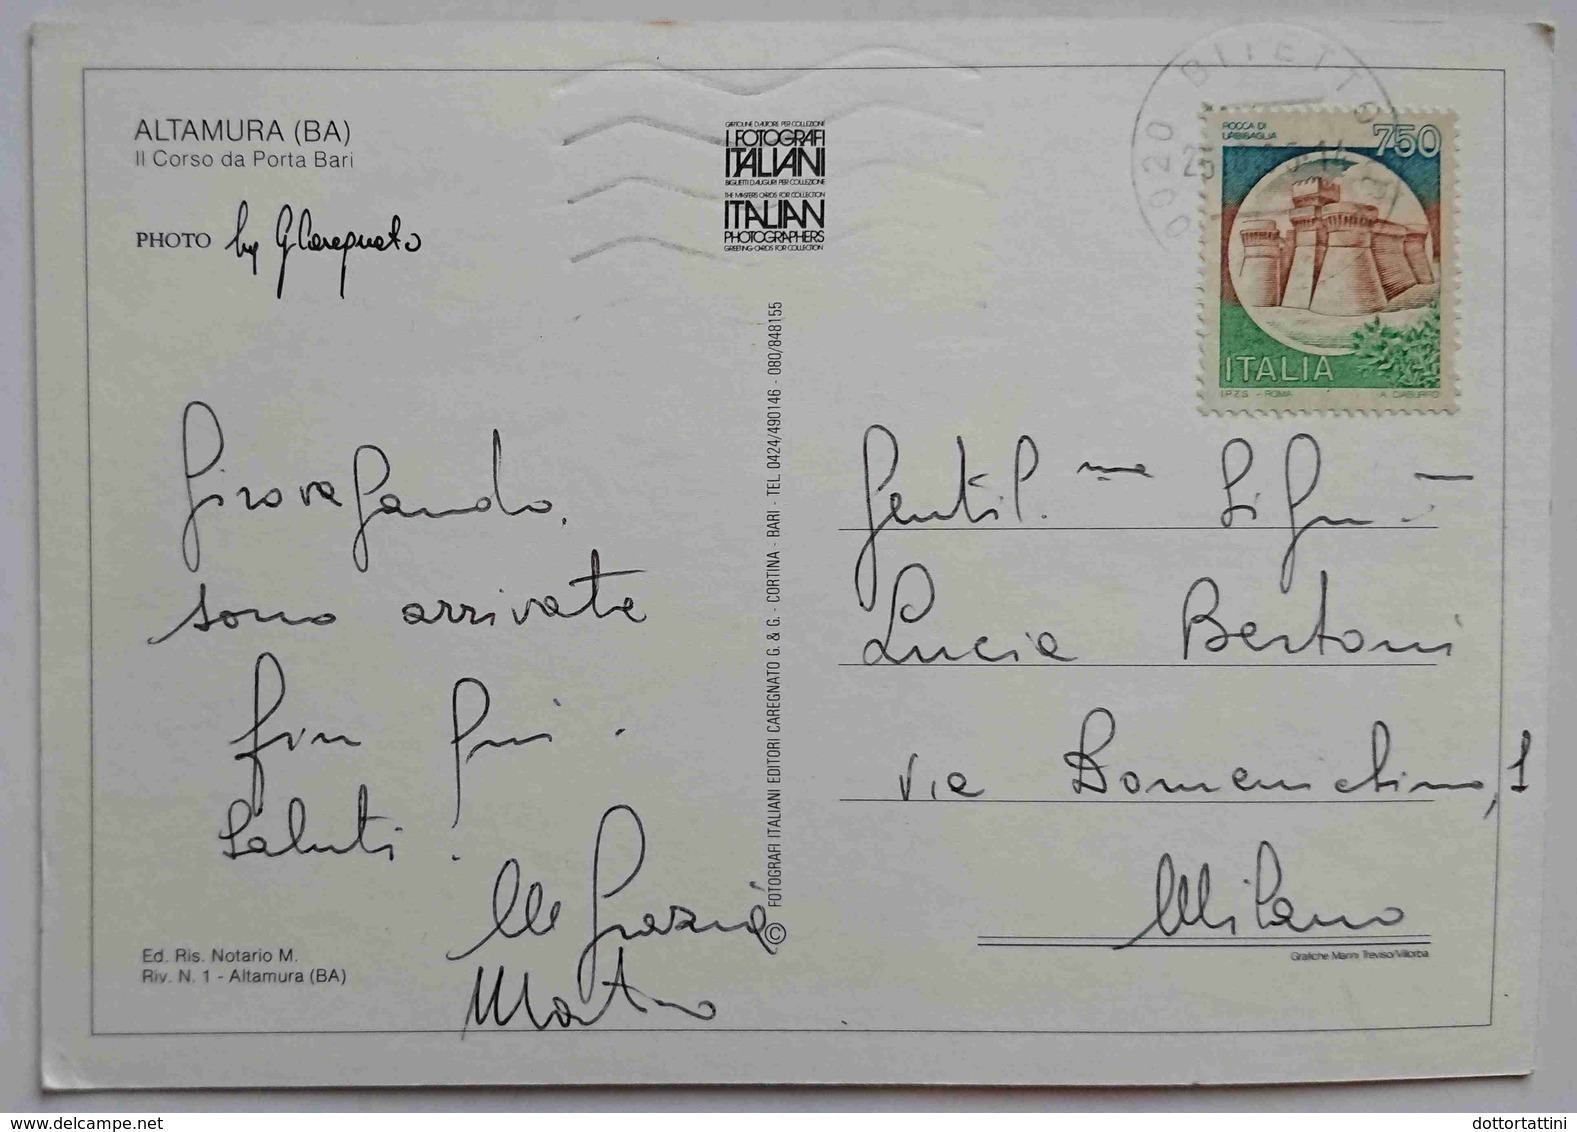 ALTAMURA (BA)
Il Corso da Porta Bari
PHOTO by G Caregnato
CARTOLINE D'AUTORE PER COLLEZIONE
I FOTOGRAFI
ITALIANI
BIGLIETTI D'AUGURI PER COLLEZIONE
THE MASTERS CARDS FOR COLLECTION
ITALIAN
PHOTOGRAPHERS
GREETING-CARDS FOR COLLECTION
BITETTO
ROCCA DI
URBISAGLIA
750
ITALIA
I.P.Z.S. - ROMA
Girovagando,
sono arrivata
fin qui.
Saluti.
M Grazia
Martino
© FOTOGRAFI ITALIANI EDITORI CAREGNATO G. & G. - CORTINA - BARI - TEL. 0424/490146 - 080/848155
Gentil.ma Sig.ra
Lucia Bertoni
via Domenichino, 1
Milano
Ed. Ris. Notario M.
Riv. N. 1 - Altamura (BA)
Grafiche Marini Treviso/Villorba
www.delcampe.net
dottortattini